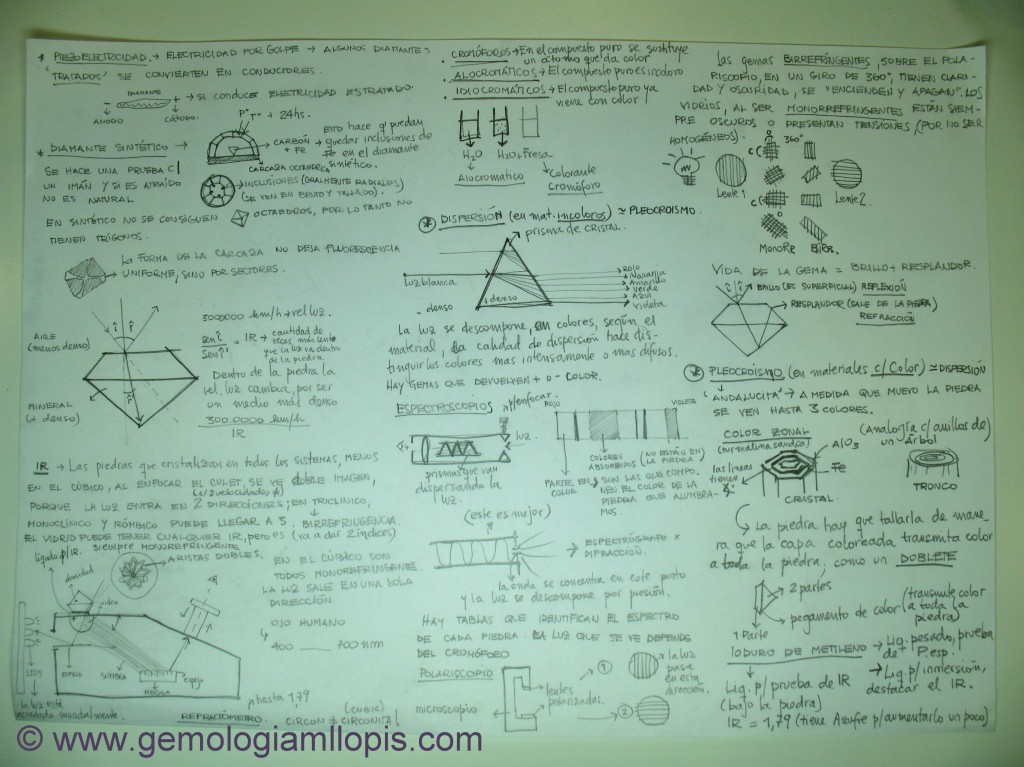 * PIEZOELECTRICIDAD. → ELECTRICIDAD POR GOLPE → ALGUNOS DIAMANTES
"TRATADOS" SE CONVIERTEN EN CONDUCTORES.
DIAMANTE
- +
→ SI CONDUCE ELECTRICIDAD ES TRATADO.
ANODO CÁTODO.
* DIAMANTE SINTÉTICO →
P° T° + 24hs.
CARBÓN + Fe
esto hace q' puedan
quedar inclusiones de
Fe en el diamante
sintético.
CARCAZA OCTAEDRICA
SE HACE UNA PRUEBA C/
UN IMÁN Y SI ES ATRAÍDO
NO ES NATURAL
→ INCLUSIONES (GRALMENTE RADIALES)
(SE VEN EN BRUTO Y TALLADO).
EN SINTÉTICO NO SE CONSIGUEN OCTAEDROS, POR LO TANTO NO
TIENEN TRÍGONOS.
LA FORMA DE LA CARCAZA NO DEJA FLUORESCENCIA
→ UNIFORME, SINO POR SECTORES.
AIRE
(menos denso)
MINERAL
(+ denso)
300000 km/h → vel luz.
sen î / sen r̂ = IR → cantidad de
veces más lento
que la luz va dentro
de la piedra
Dentro de la piedra la
vel. luz cambia, por ser
un medio más denso.
300.0000 km/h
IR
IR → Las piedras que cristalizan en todos los sistemas, menos
EN EL CÚBICO, AL ENFOCAR EL CULET, SE VE DOBLE IMAGEN,
(c/2 velocidades ≠)
PORQUE LA LUZ ENTRA EN 2 DIRECCIONES; EN TRICLÍNICO,
MONOCLÍNICO Y RÓMBICO PUEDE LLEGAR A 3. BIRREFRINGENCIA.
EL VIDRIO PUEDE TENER CUALQUIER IR, pero es (va a dar 2 índices)
siempre MONOREFRINGENTE
líquido p/ IR.
→ ARISTAS DOBLES.
densidad
vidrio
EN EL CÚBICO SON
TODOS MONOREFRINGENTE.
LA LUZ SALE EN UNA SOLA
DIRECCIÓN
OJO HUMANO
400 — 700 nm
LEDS
ESPEJO
SOMBRA
REGLA
espejo
la luz está
mundialmente.
REFRACTÓMETRO. → hasta 1,79
(CUBIC)
CIRCON ≠ CIRCONITA!
· CROMÓFOROS → En el compuesto puro se sustituye
un átomo que da color
· ALOCROMÁTICOS → El compuesto puro es incoloro
· IDIOCROMÁTICOS → El compuesto puro ya
viene con color
H₂O H₂O + Fresa
Alocromatico
colorante
Cromóforo
* DISPERSIÓN (en mat. incoloros) ≃ PLEOCROISMO.
prisma de CRISTAL.
luz blanca
- denso
+ denso
ROJO
Naranja
Amarillo
Verde
AZUL
Violeta
La luz se descompone, en colores, según el
material, la calidad de dispersión hace dis-
tinguir los colores mas intensamente o mas difusos.
HAY GEMAS QUE DEVUELVEN + o - COLOR.
ESPECTROSCOPIOS
p/ enfocar.
luz.
prismas que van
dispersando la
luz.
ROJO VIOLETA
PARTE EN COLOR
COLORES ABSORBIDOS (NO ESTÁN EN LA PIEDRA)
SON LAS QUE COMPO-
NEN EL COLOR DE LA
PIEDRA QUE ALUMBRA-
MOS.
(este es mejor)
→ ESPECTRÓGRAFO X
DIFRACCIÓN.
la onda se concentra en este punto
y la luz se descompone por presión.
HAY TABLAS QUE IDENTIFICAN EL ESPECTRO
DE CADA PIEDRA. LA LUZ QUE SE VE DEPENDE
DEL CROMÓFORO
POLARISCOPIO
microscopio
lentes
polarizadas.
1
2
la luz
pasa
en esta
dirección.
Las gemas BIRREFRINGENTES, SOBRE EL POLA-
RISCOPIO, EN UN GIRO DE 360°, TIENEN CLARI-
DAD Y OSCURIDAD, SE "ENCIENDEN Y APAGAN". LOS
VIDRIOS, AL SER MONORREFRINGENTES ESTÁN SIEM-
PRE OSCUROS O PRESENTAN TENSIONES (POR NO SER
HOMOGÉNEOS).
360°
Lente 1
Lente 2.
MONORE BIRR.
VIDA DE LA GEMA = BRILLO + RESPLANDOR.
BRILLO (ES SUPERFICIAL) REFLEXIÓN
→ RESPLANDOR (SALE DE LA PIEDRA)
REFRACCIÓN
* PLEOCROISMO (en materiales c/ Color) ≃ DISPERSIÓN
"ANDALUCITA" → A MEDIDA QUE MUEVO LA PIEDRA
SE VEN HASTA 3 COLORES.
COLOR ZONAL
(turmalina sandía)
(Analogía c/ anillos de)
un Árbol
AlO₃
Fe
las lineas
tienen
CRISTAL.
TRONCO
La piedra hay que tallarla de mane-
ra que la capa coloreada transmita color
a toda la piedra. como un DOBLETE
2 partes
pegamento de color (transmite color
a toda la
piedra)
1 Parte
IODURO DE METILENO → Liq. pesado, prueba
de P. esp.
→ Liq. p/ inmersión,
destacar el IR.
Liq. p/ prueba de IR
(bajo la piedra)
IR = 1,79 (tiene Azufre p/ aumentarlo un poco)
© www.gemologiamllopis.com